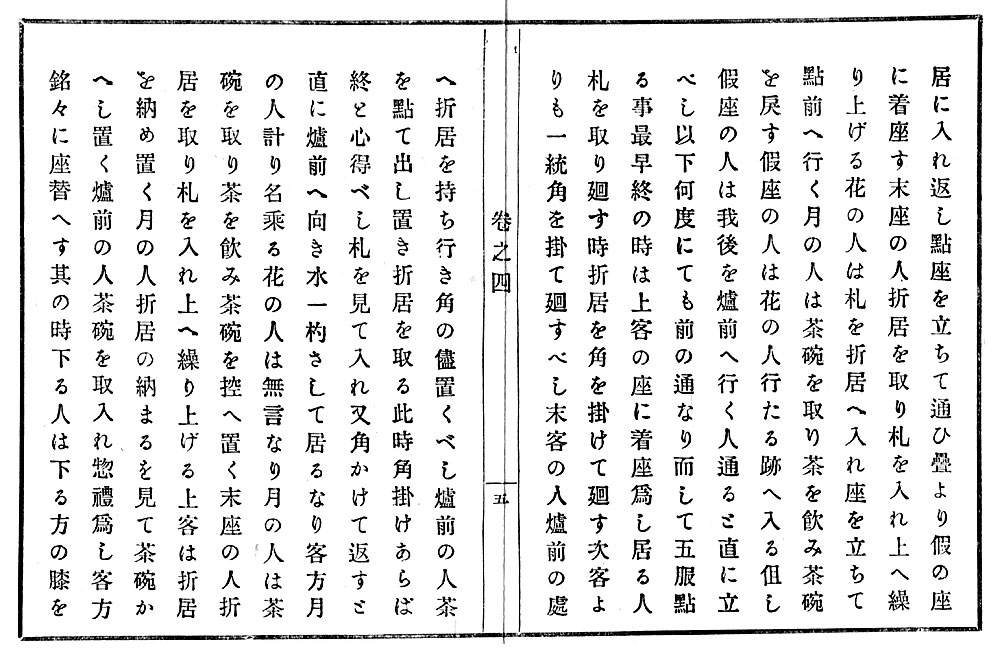 居に入れ返し點座を立ちて通ひ疊より假の座
に着座す末座の人折居を取り札を入れ上へ繰
り上げる花の人は札を折居へ入れ座を立ちて
點前へ行く月の人は茶碗を取り茶を飮み茶碗
を戻す假座の人は花の人行たる跡へ入る但し
假座の人は我後を爐前へ行く人通ると直に立
べし以下何度にても前の通なり而して五服點
る事最早終の時は上客の座に着座爲し居る人
札を取り廻す時折居を角を掛けて廻す次客よ
りも一統角を掛て廻すべし末客の人爐前の處
卷之四
五
へ折居を持ち行き角の儘置くべし爐前の人茶
を點て出し置き折居を取る此時角掛けあらば
終と心得べし札を見て入れ又角かけて返すと
直に爐前へ向き水一杓さして居るなり客方月
の人計り名乘る花の人は無言なり月の人は茶
碗を取り茶を飮み茶碗を控へ置く末座の人折
居を取り札を入れ上へ繰り上げる上客は折居
を納め置く月の人折居の納まるを見て茶碗か
へし置く爐前の人茶碗を取入れ惣禮爲し客方
銘々に座替へす其の時下る人は下る方の膝を